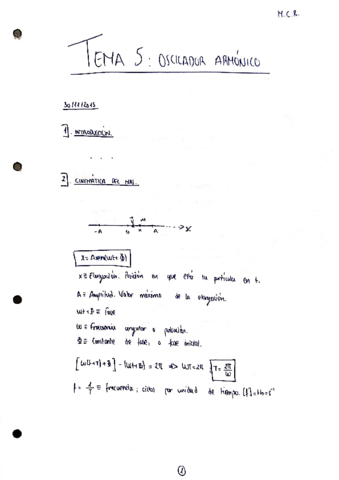 M.C.R.
TEMA 5: OSCILADOR ARMÓNICO
30/11/2015
1. INTRODUCCIÓN.
. . .
2. CINEMÁTICA DEL MAS.
-A O x A X
x = A sen(ωt + ϕ)
x ≡ Elongación. Posición en que está la partícula en t.
A ≡ Amplitud. Valor máximo de la elongación.
ωt + ϕ ≡ Fase
ω ≡ Frecuencia angular o pulsación.
ϕ ≡ Constante de fase, o fase inicial.
[ω(t+T)+ϕ] - (ωt+ϕ) = 2π => ωT = 2π T = 2π/ω
f = 1/T ≡ frecuencia; ciclos por unidad de tiempo. [f] = Hz = s⁻¹
1